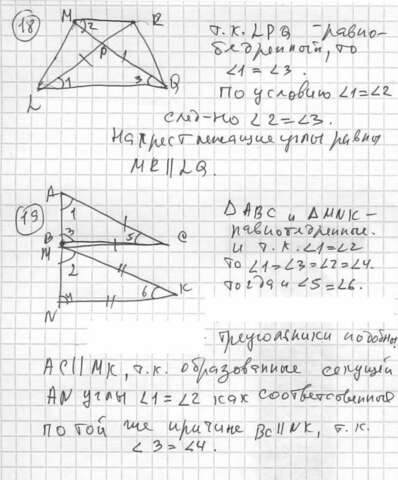 18
M
R
2
P
1
3
L
Q
т.к. LPQ -равно-
бедренный, то
∠1 = ∠3.
По условию ∠1=∠2
след-но ∠2=∠3.
Накрест лежащие углы равны
MR∥LQ.
19
A
1
B
3
5
C
M
2
6
K
N
△ABC и △MNK -
равнобедренные.
и т.к. ∠1=∠2
то ∠1=∠3=∠2=∠4.
тогда и ∠5=∠6.
треугольники подобны
AC∥MK, т.к. образованные секущей
AN углы ∠1=∠2 как соответственные
по той же причине BC∥NK, т.к.
∠3=∠4.